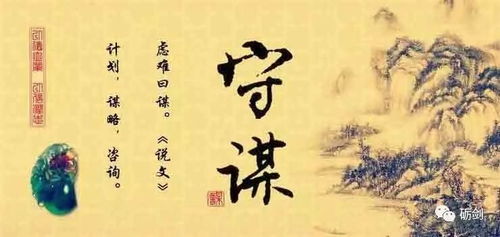 守谋
虑难曰谋。《说文》
计划，谋略，咨询。
砺剑